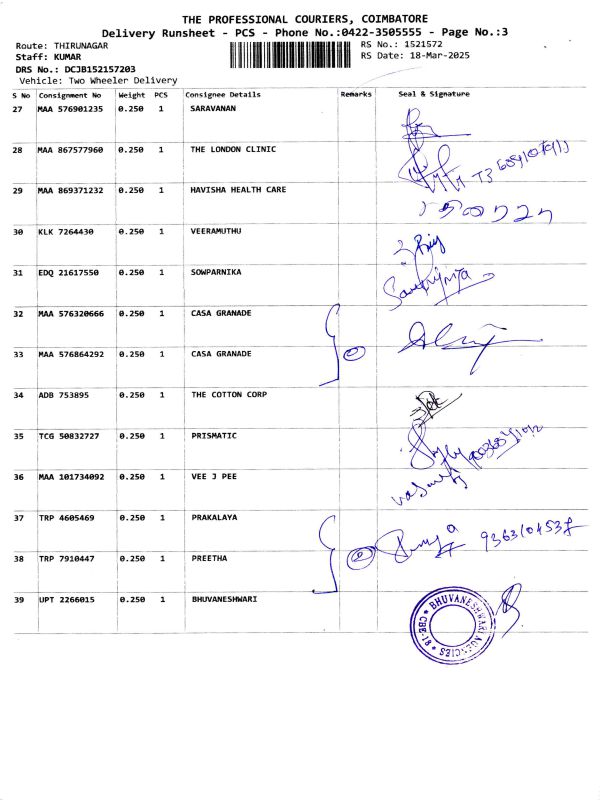 THE PROFESSIONAL COURIERS, COIMBATORE
Delivery Runsheet - PCS - Phone No.:0422-3505555 - Page No.:3
Route: THIRUNAGAR RS No.: 1521572
Staff: KUMAR RS Date: 18-Mar-2025
DRS No.: DCJB152157203
Vehicle: Two Wheeler Delivery
S No Consignment No Weight PCS Consignee Details Remarks Seal & Signature
27 MAA 576901235 0.250 1 SARAVANAN
28 MAA 867577960 0.250 1 THE LONDON CLINIC
29 MAA 869371232 0.250 1 HAVISHA HEALTH CARE
30 KLK 7264430 0.250 1 VEERAMUTHU
31 EDQ 21617550 0.250 1 SOWPARNIKA
32 MAA 576320666 0.250 1 CASA GRANADE
33 MAA 576864292 0.250 1 CASA GRANADE
34 ADB 753895 0.250 1 THE COTTON CORP
35 TCG 50832727 0.250 1 PRISMATIC
36 MAA 101734092 0.250 1 VEE J PEE
37 TRP 4605469 0.250 1 PRAKALAYA
38 TRP 7910447 0.250 1 PREETHA
39 UPT 2266015 0.250 1 BHUVANESHWARI
BHUVANESHWARI AGENCIES
CBE-18